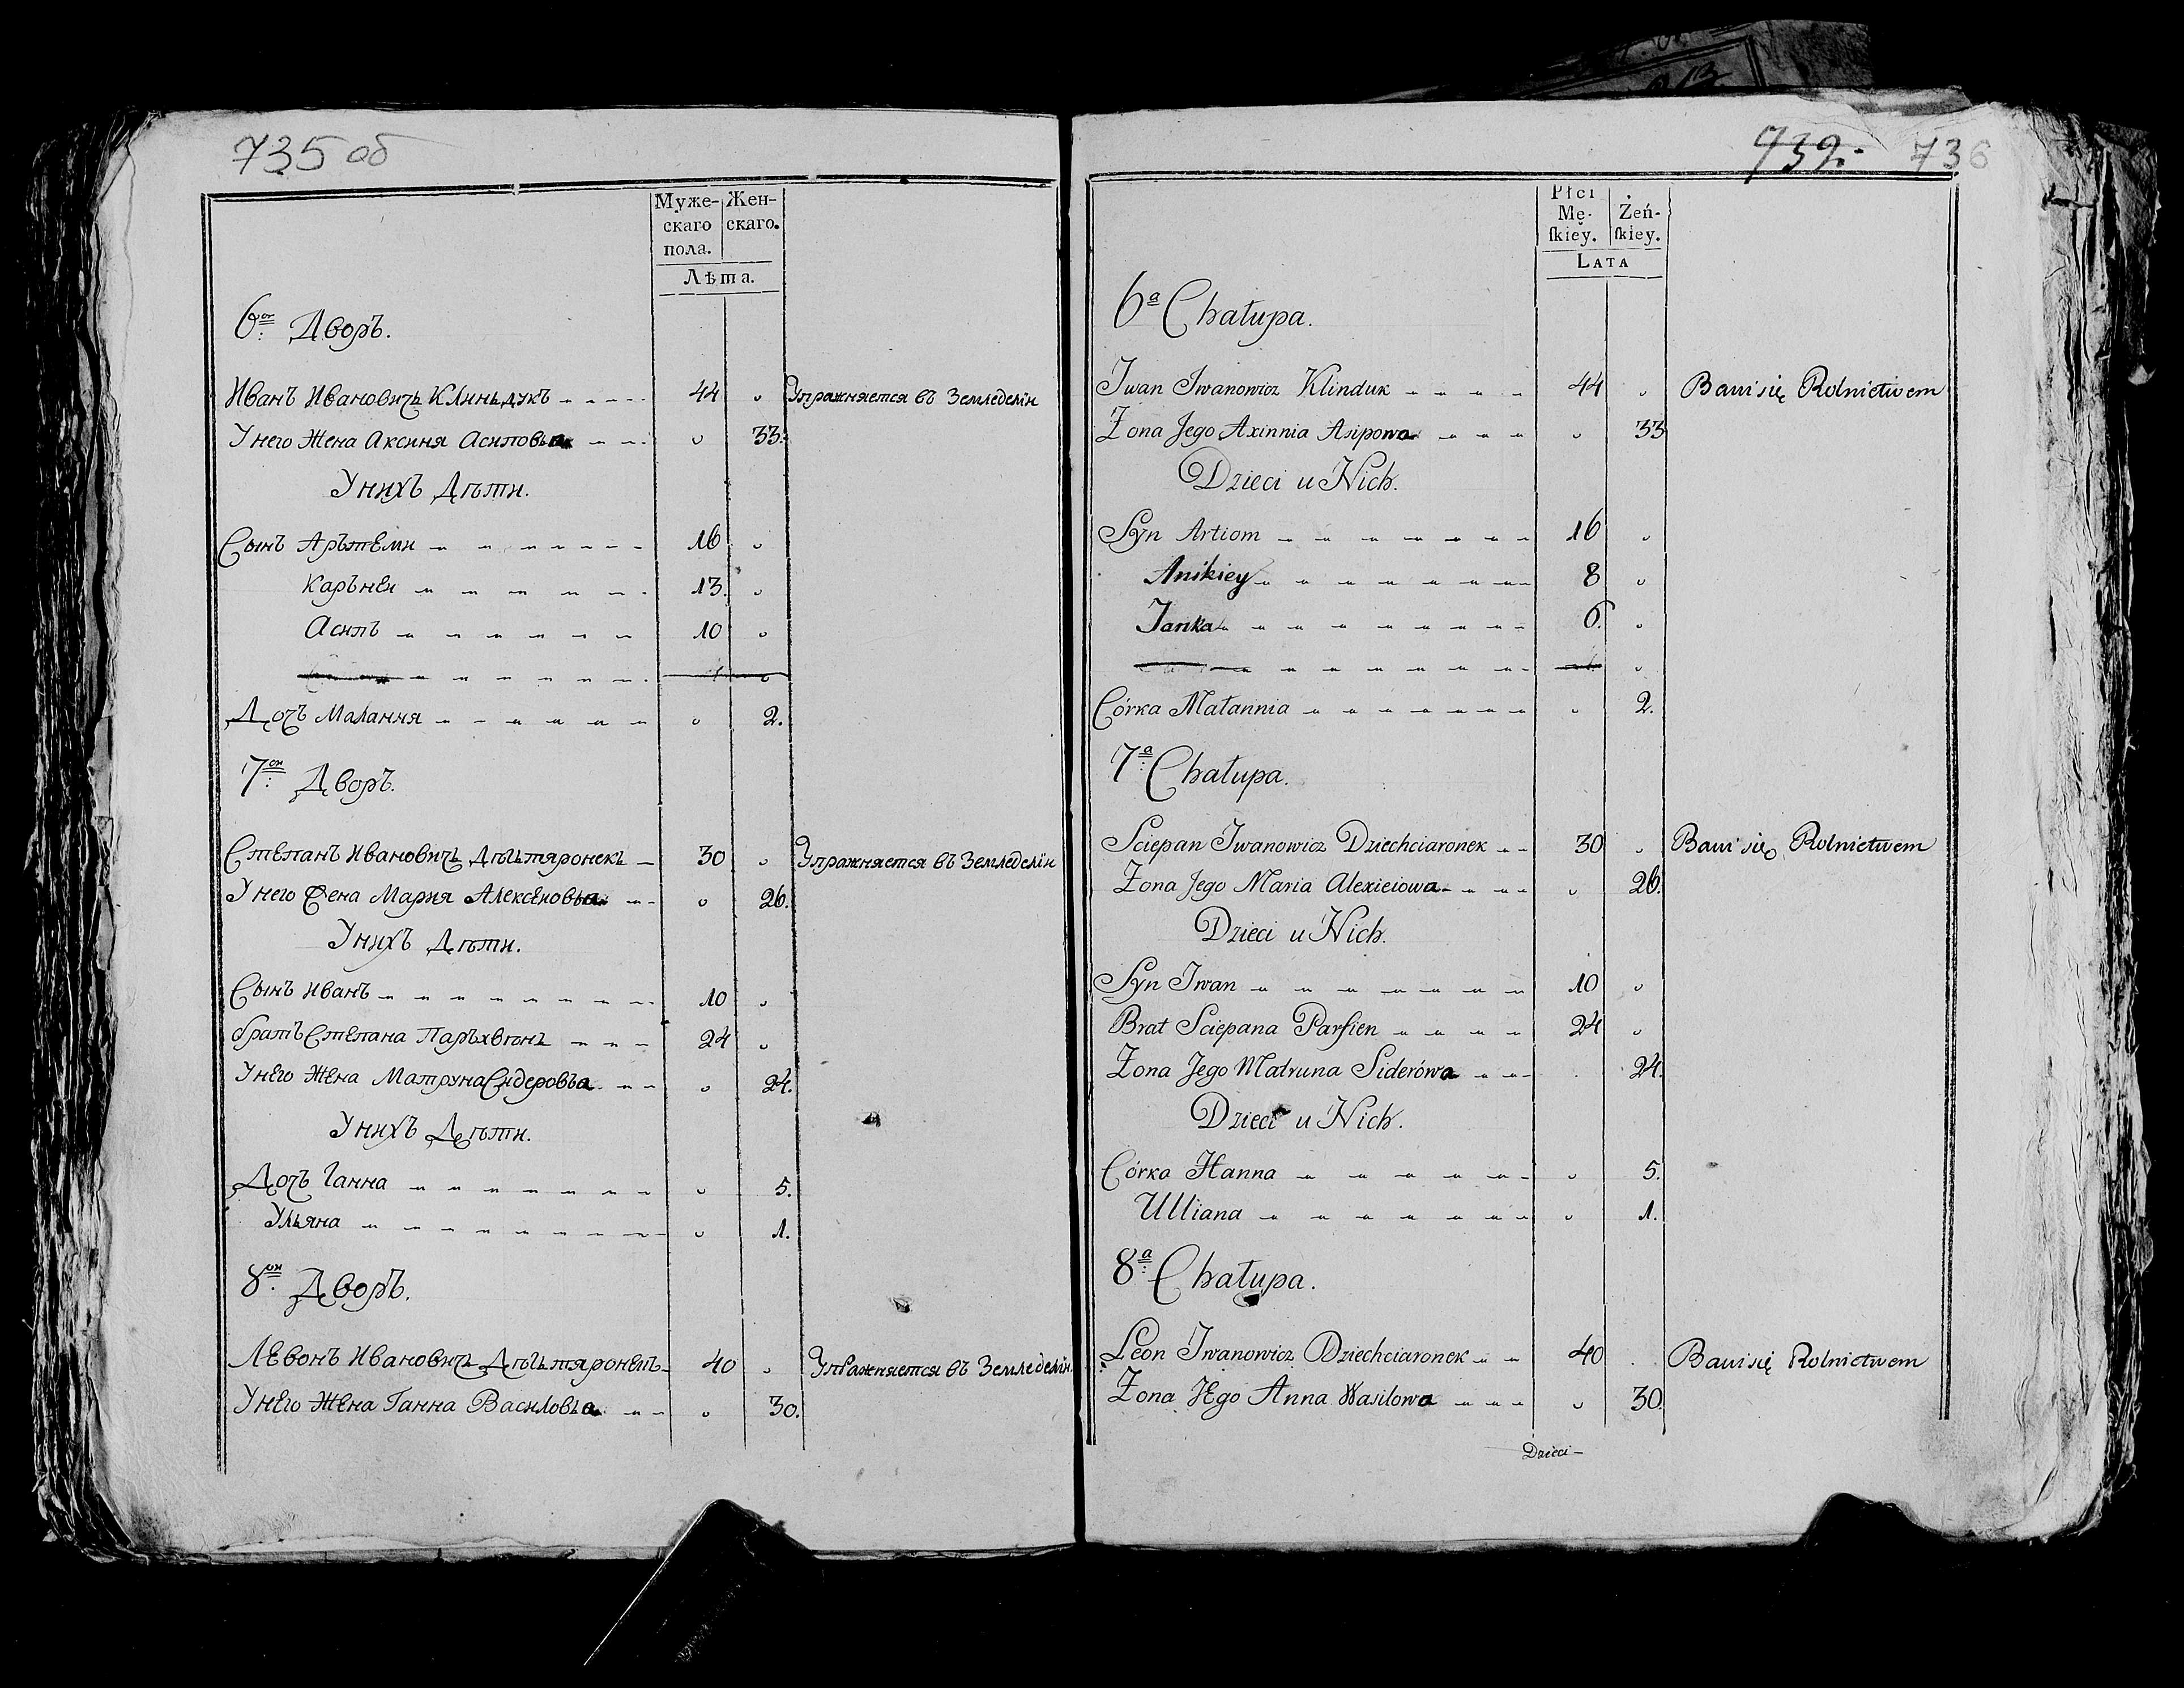 735 об
Муже-
скаго
пола.
Жен-
скаго.
Лѣта.
6ои Дворъ.
Иванъ Ивановичь Клиньдукъ 44 Упражняется въ Земледелiи
У него Жена Аксиня Асиповьа 33.
У нихъ Дѣти.
Сынъ Арътеми 16
Каръней 13.
Асипъ 10
Дочъ Малання 2.
7ои Дворъ.
Степанъ Ивановичь Дѣхьтяронекъ 30 Упражняется въ Земледелiи
У него Жена Мария Алексеиовьа 26.
У нихъ Дѣти.
Сынъ Иванъ 10
братъ Степана Паръхвѣнъ 24
У него Жена Матруна Сидеровьа 24.
У нихъ Дѣти.
Дочъ Ганна 5.
Ульяна 1.
8ои Дворъ.
Левонъ Ивановичь Дѣхьтяронекъ 40 Упражняется въ Земледелiи
У него Жена Ганна Василовьа 30.
739. 736
Płci
Mę-
ſkiey.
Żeń-
ſkiey.
LATA
6a Chałupa.
Jwan Jwanowicz Klinduk 44 Bawi się Rolnictwem
Żona Jego Axinnia Asipowa 33
Dzieci u Nich.
Syn Artiom 16
Anikiey 8
Janka 6.
Córka Małannia 2.
7a Chałupa.
Sciepan Jwanowicz Dziechciaronek 30 Bawi się Rolnictwem
Żona Jego Maria Alexieiowa 26.
Dzieci u Nich.
Syn Jwan 10
Brat Sciepana Parfien 24
Żona Jego Matruna Siderówa 24.
Dzieci u Nich.
Córka Hanna 5.
Ulliana 1.
8a Chałupa.
Leon Jwanowicz Dziechciaronek 40 Bawi się Rolnictwem
Żona Jego Anna Wasilowa 30.
Dzieci